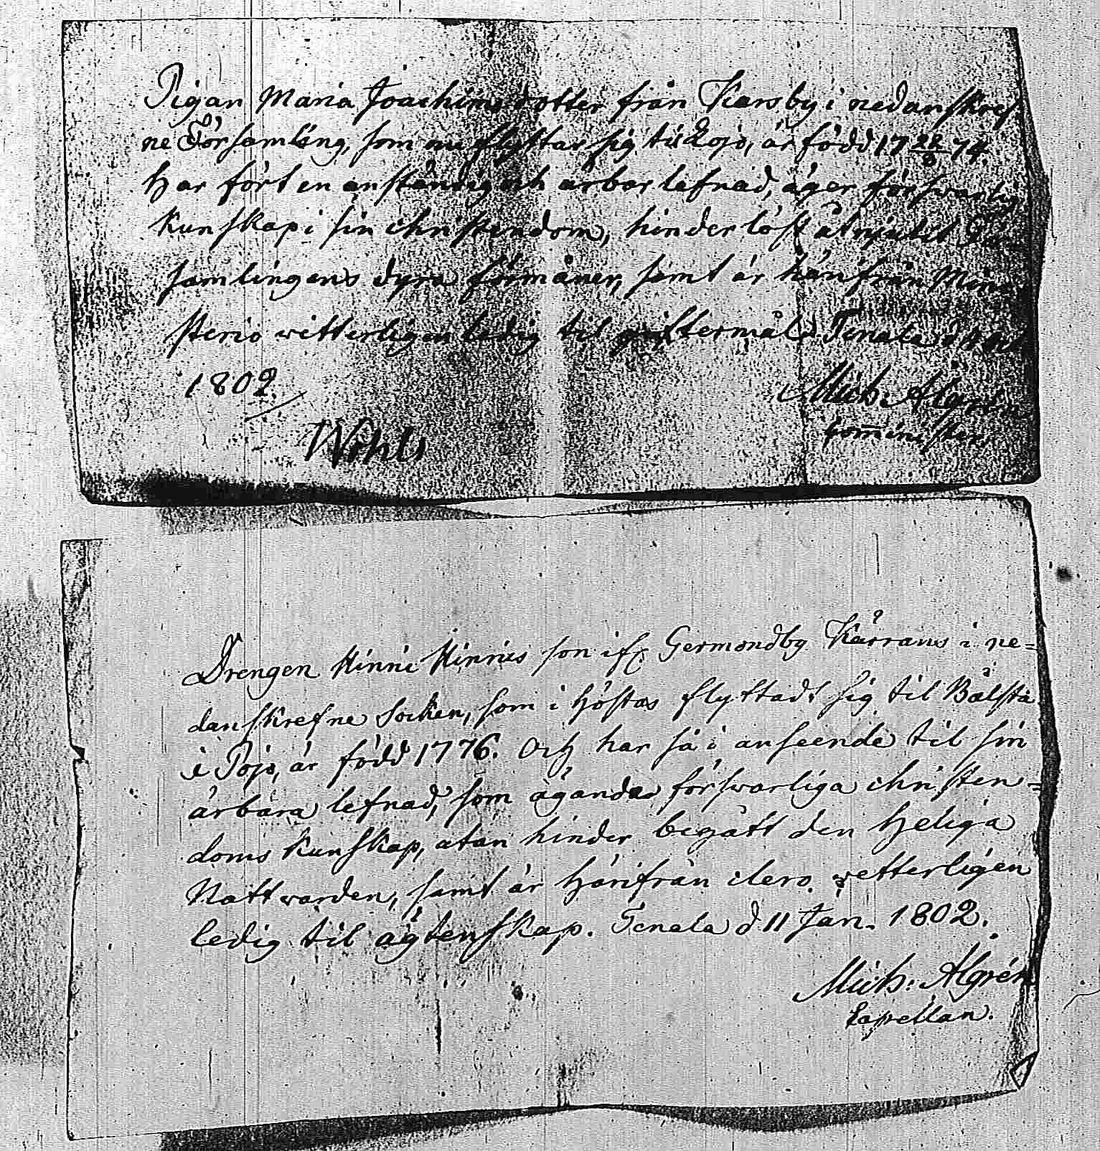 Pigan Maria Joachims dotter från Karsby i nedanskref
ne Församling, som nu flyttar sig til Lojo, är född 17 22/8 74.
Har fört en anständig och ärbar lefnad, äger försvarlig
kunskap i sin christendom, hinderlöst åtnjutit För
samlingens dyra förmåner, samt är härifrån Mini
sterio vitterligen ledig til giftermål. Tenala d
1802.
Mich: Algrén
Comminister.
Wohls
Drengen Hinric Hinrics son ifr. Germondby Kårraws i ne=
danskrefne Socken, som i höstas flyttadt sig til Bålsta
i Pojo, är född 1776. Och har så i anseende til sin
ärbara lefnad, som ägande försvarliga christen=
doms kunskap, utan hinder begått den Heliga
Nattvarden, samt är härifrån clero vetterligen
ledig til ägtenskap. Tenala d 11 Jan. 1802.
Mich: Algrén
Capellan.